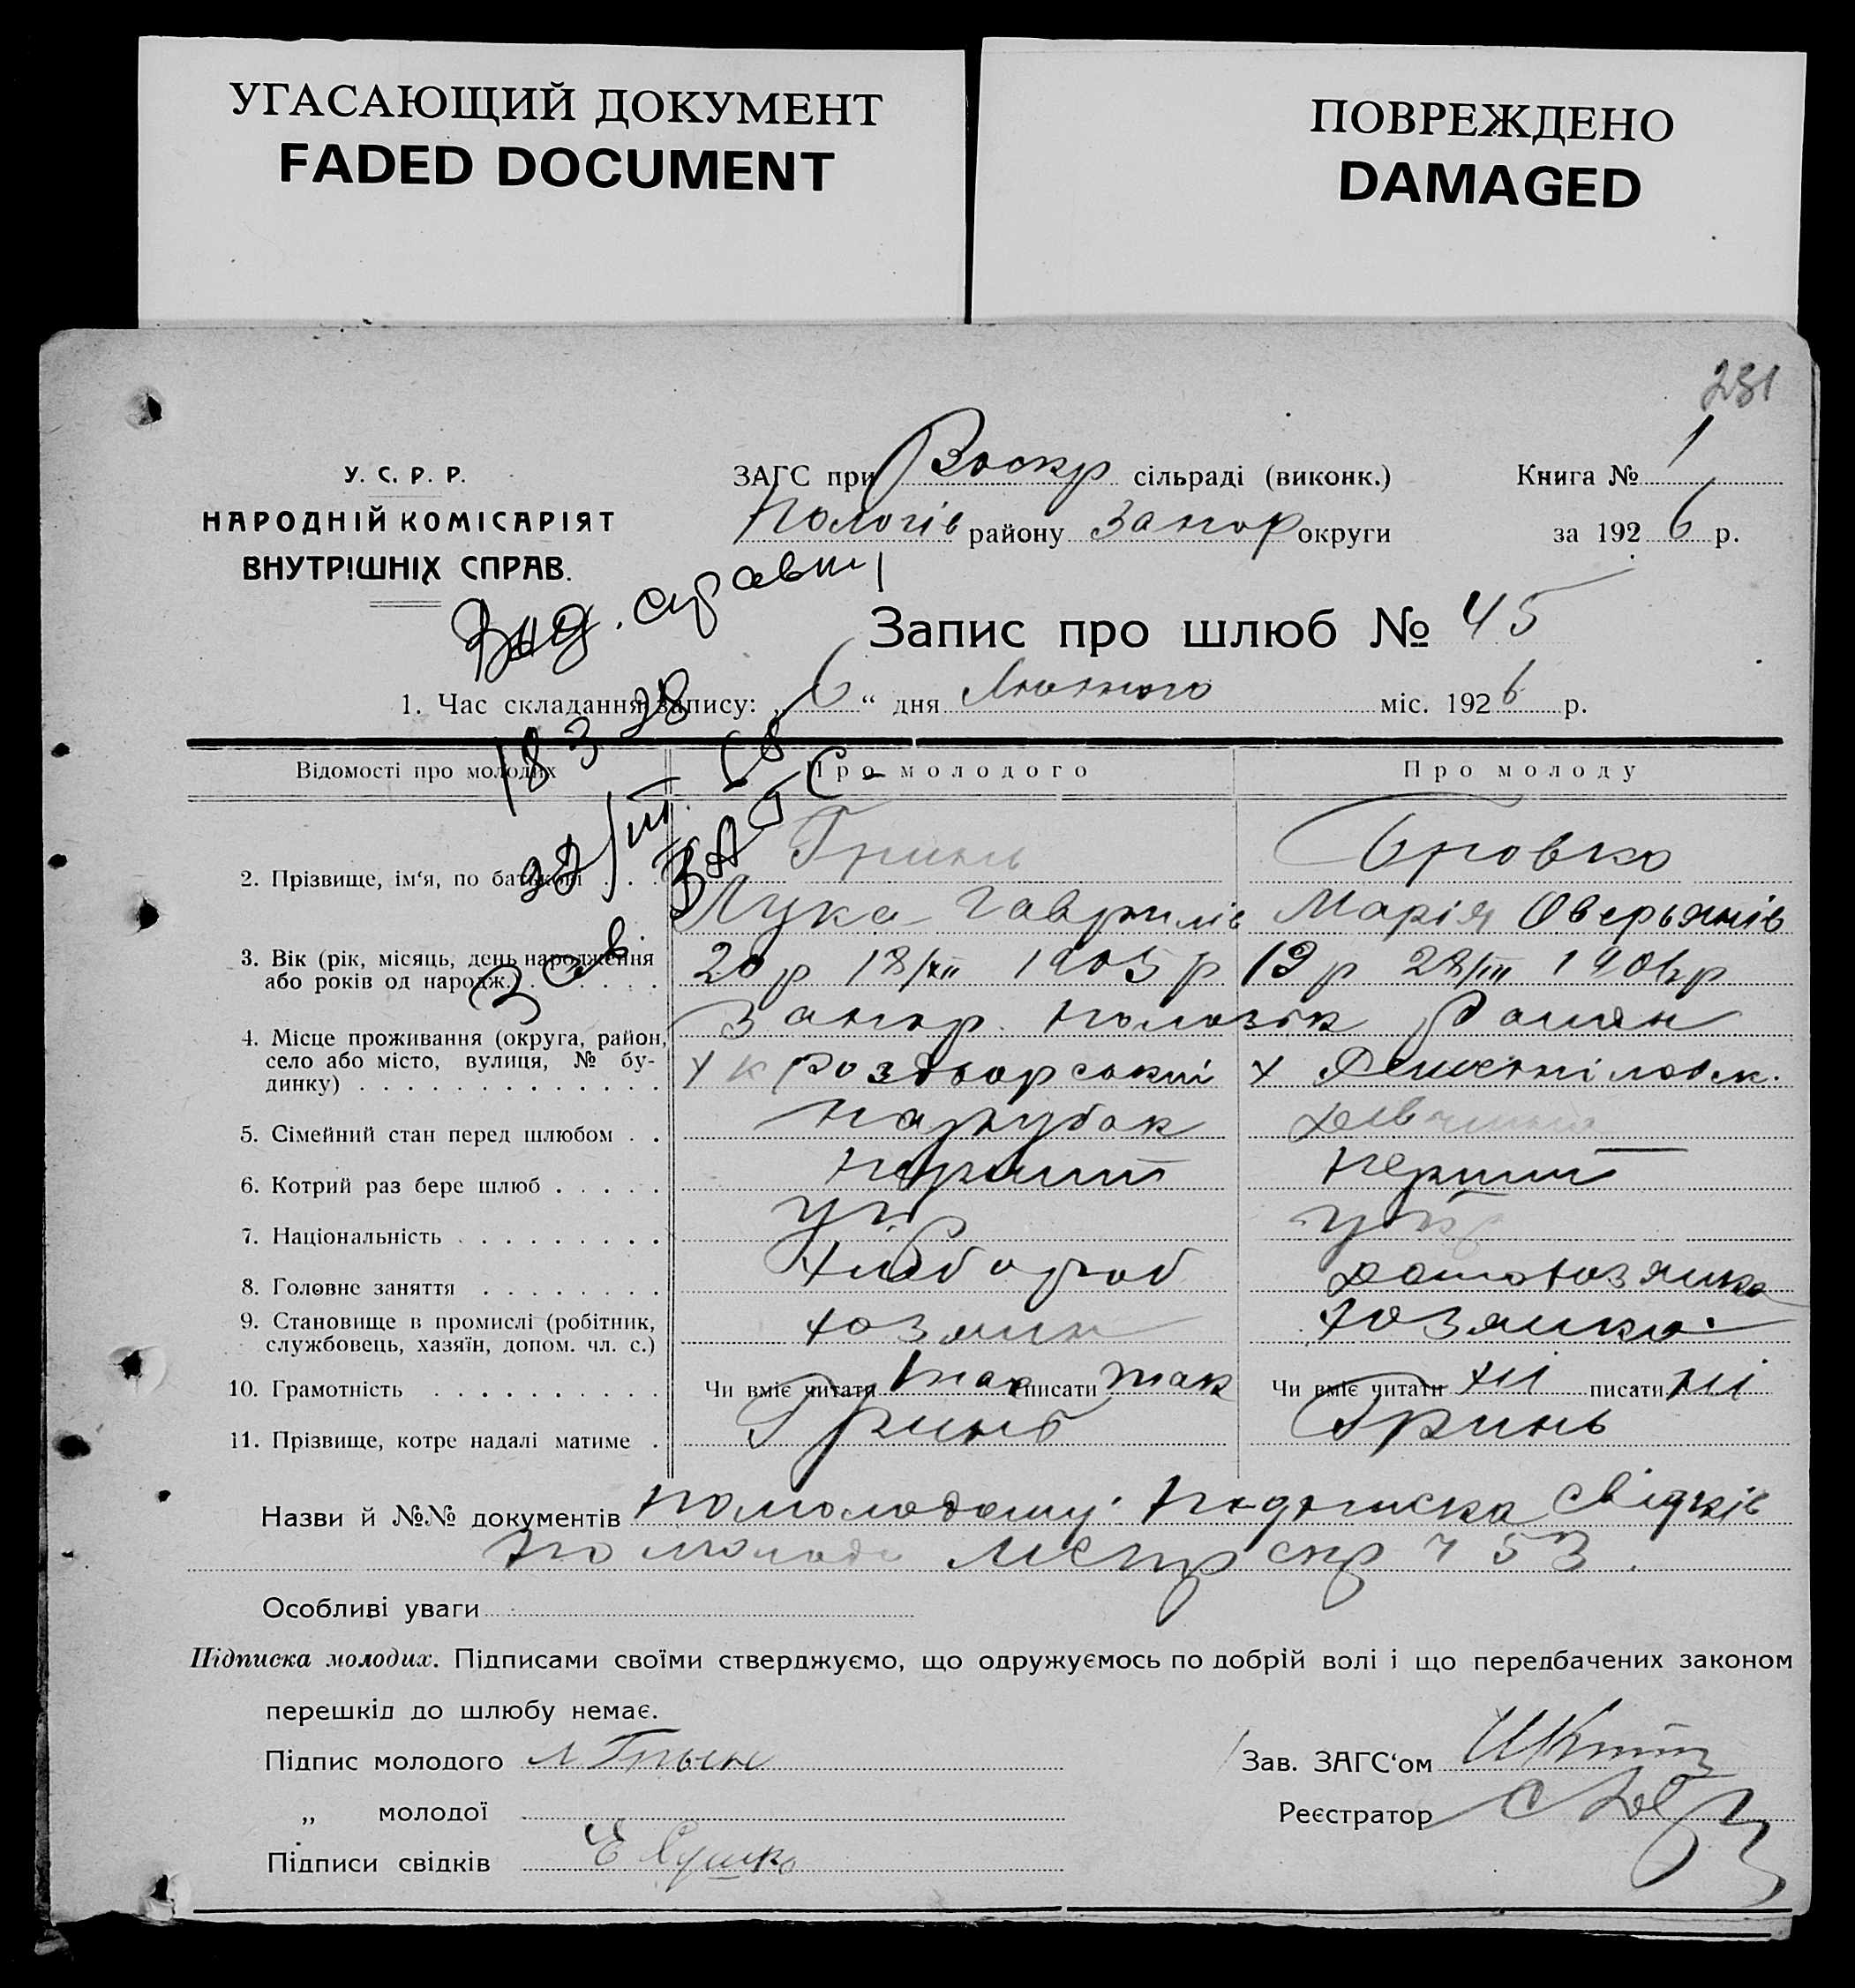 УГАСАЮЩИЙ ДОКУМЕНТ
FADED DOCUMENT
ПОВРЕЖДЕНО
DAMAGED
231
У. С. Р. Р.
НАРОДНІЙ КОМІСАРІЯТ
ВНУТРІШНІХ СПРАВ.
ЗАГС при Воскр сільраді (виконк.) Книга № 1
Пологів району Запор округи за 1926 р.
Вид. справки
Запис про шлюб № 45
1. Час складання запису: „6“ дня Лютого міс. 1926 р.
18 3 28
22/III 58
ЗАГС
Відомості про молодих Про молодого Про молоду
2. Прізвище, ім'я, по батькові . . . Гринь
Лука Гаврилів Марія Оверьянів
3. Вік (рік, місяць, день народження
або років од народж.) . . . . . 20 р 18/XII 1905 р 19 р 28/III 1906 р
4. Місце проживання (округа, район,
село або місто, вулиця, № бу-
динку) . . . . . . . . . . . . . Запор.
5. Сімейний стан перед шлюбом . . парубок дівчина
6. Котрий раз бере шлюб . . . . . перший перший
7. Національність . . . . . . . . . укр укр
8. Головне заняття . . . . . . . . хлібороб домохозяйка
9. Становище в промислі (робітник,
службовець, хазяїн, допом. чл. с.) хозяин хозяйка
10. Грамотність . . . . . . . . . . Чи вміє читати так писати так Чи вміє читати ні писати ні
11. Прізвище, котре надалі матиме . Гринь Гринь
Назви й №№ документів по молодому: підписка свідків
по молоді метр 53.
Особливі уваги
Підписка молодих. Підписами своїми стверджуємо, що одружуємось по добрій волі і що передбачених законом
перешкід до шлюбу немає.
Підпис молодого Л Гринь Зав. ЗАГС'ом
„ молодої Реєстратор
Підписи свідків